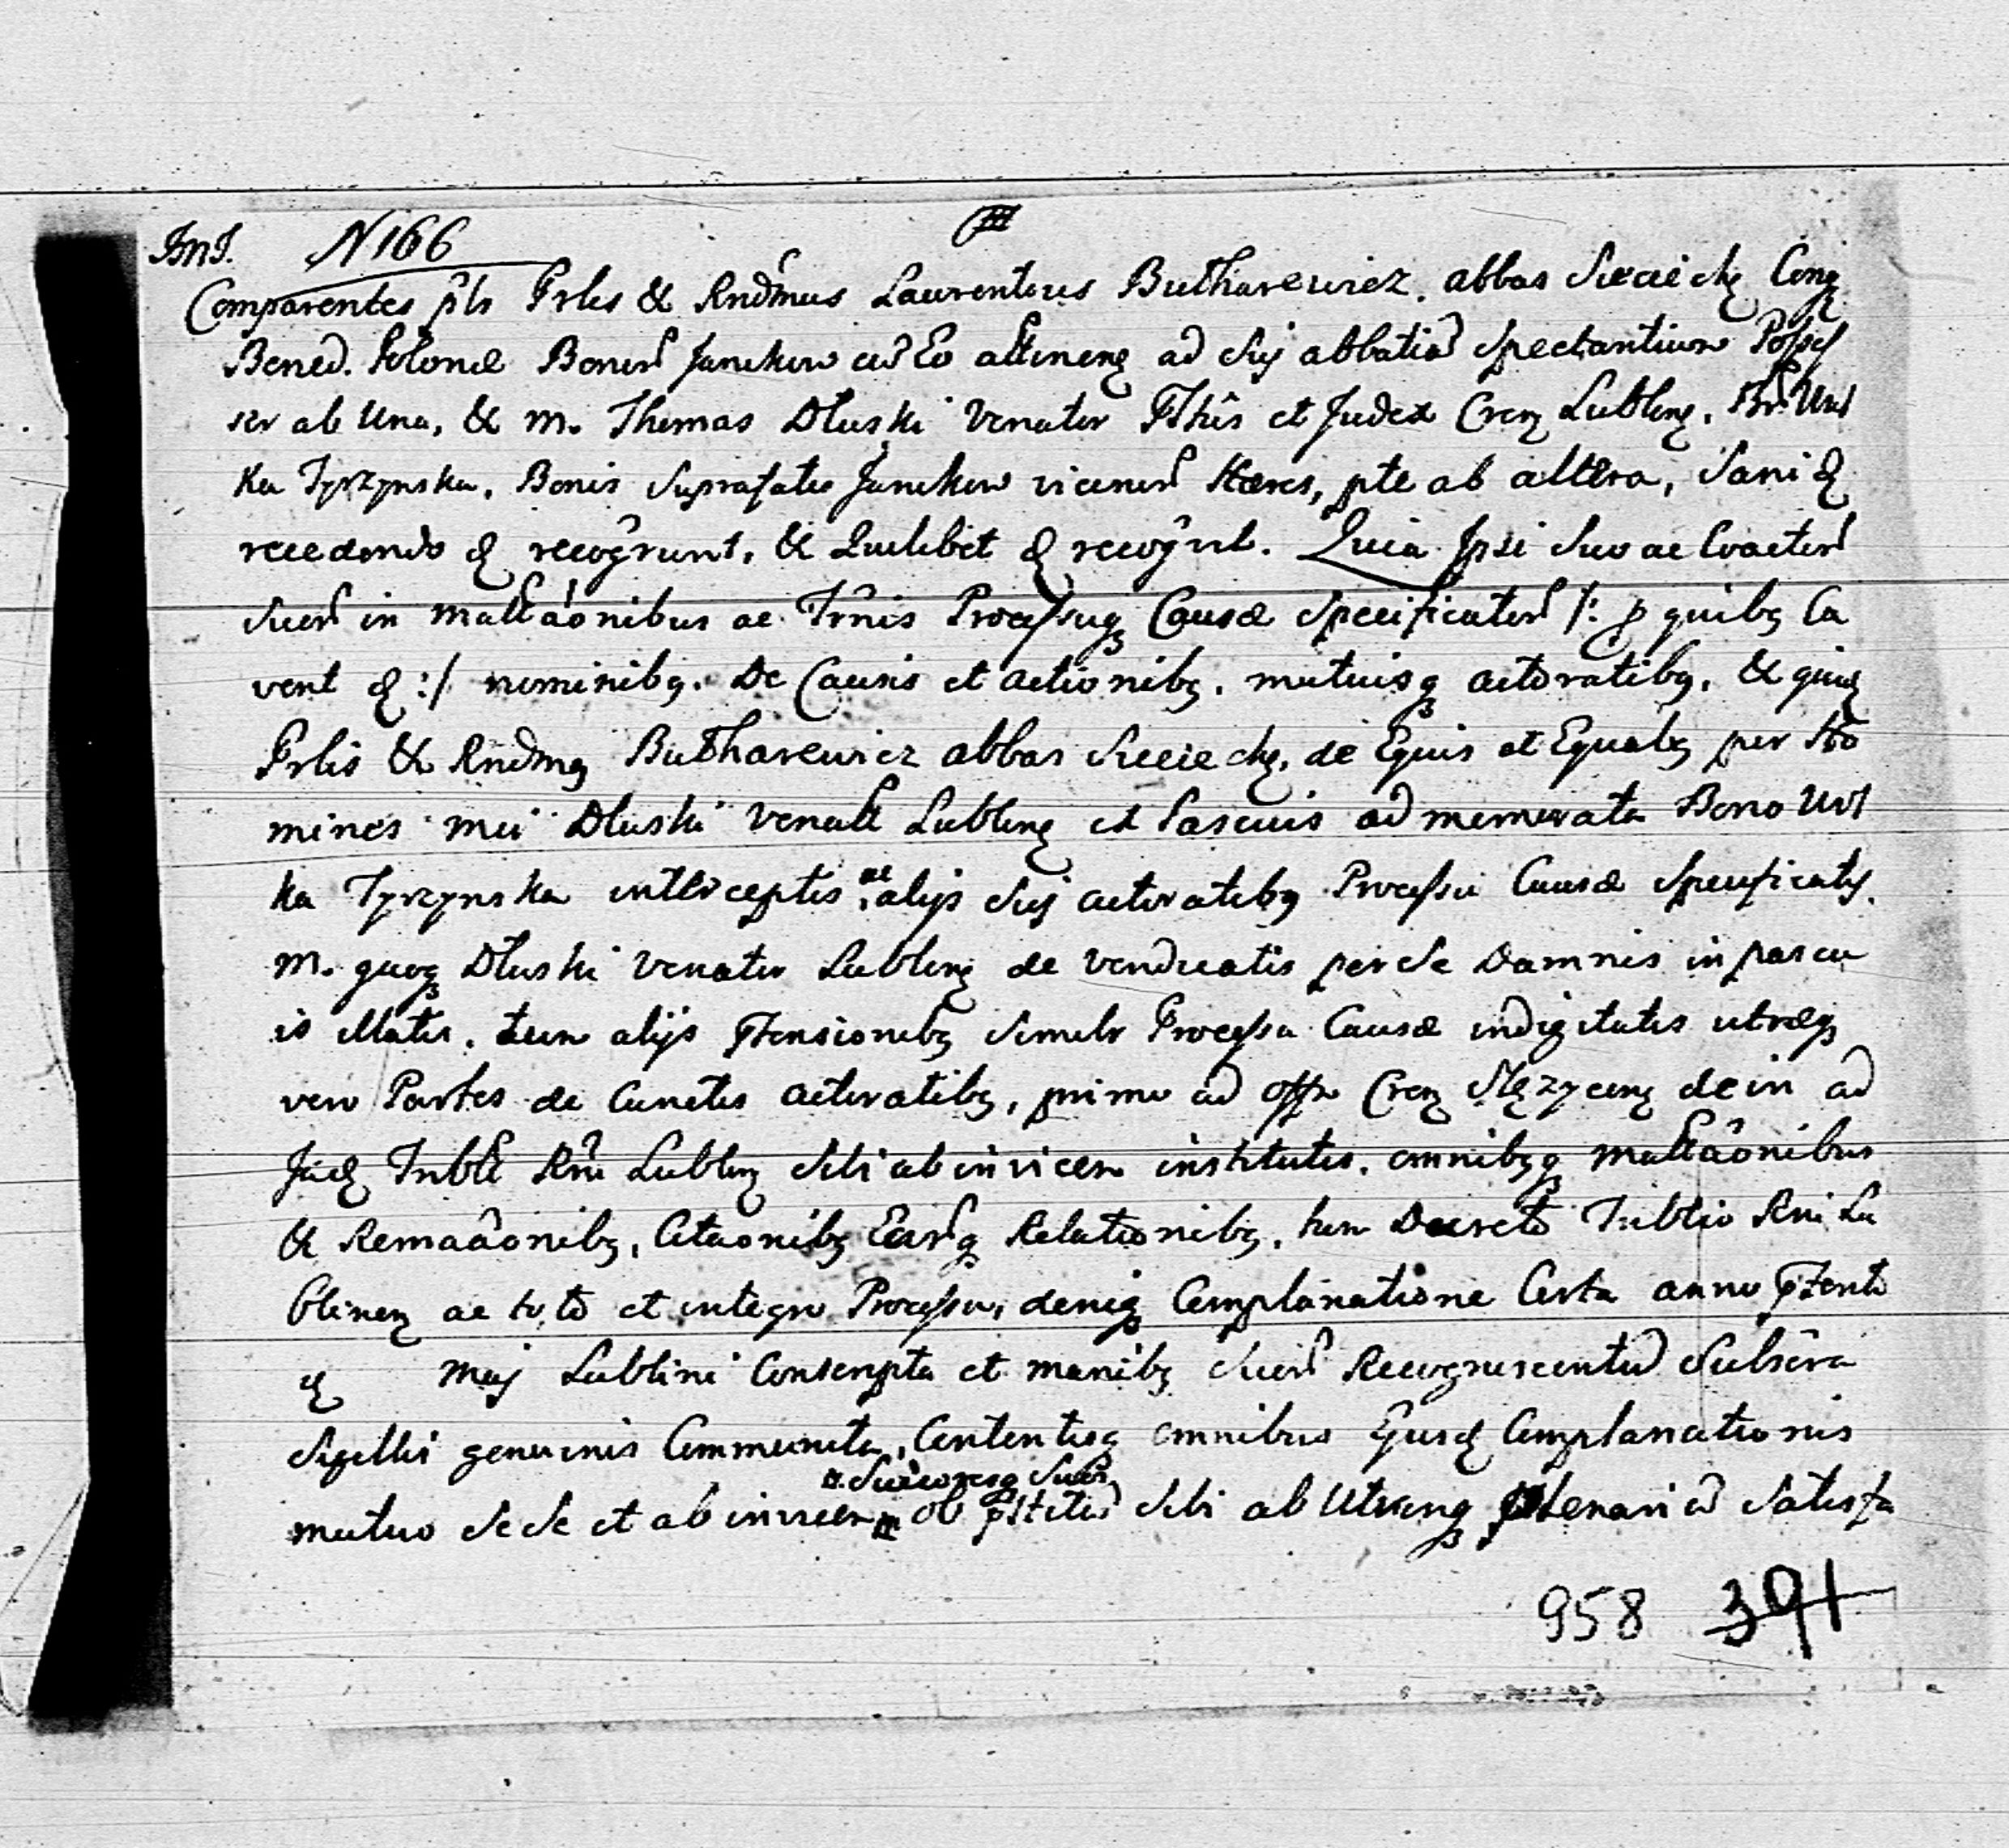 Int. N 166
Comparentes plr Prlis & Rndmus Laurentius Butharewicz, abbas Sieciech Cong
Bened. Polonæ Bonor Janikow cu Eo attinen ad Suj abbatia Spectantium Posses
sor ab Una, & M. Thomas Dłuski Venator Pthûs et Judex Cren Lublin, Bnr Wul
ka Tyrzynska, Bonis Suprafatis Janikow vicinor Hæres, pte ab altera, Sani &
recedendo & recogrunt, & Quilibet & recognt. Quia Ipsi Suo ac Coactor
Suor in mattâonibus ac Trnis Processuq Causæ Specificator /: p quibq Ca
vent & :/ nominibq. De Causis et actionibq, mutuisq actoratibq, & quiq
Prlis & Rndmq Butharewicz abbas Sieciech, de Equis et Equabq per Ho
mines mci Dłuski Venatt Lublin ex Pascuis ad memorata Bona Wul
ka Tyrzynska interceptis, ac alijs Suj actoratibq Processu Causæ Specificatis,
M. quoq Dłuski Venator Lublin de vendicatis per Se Damnis in pascu
is illatis, tum alijs Ptensionibq Simulr Processu Causæ indigitatis utræq
vero Partes de Cunctis actoratibq, primo ad offm Cren Stęzycen dein ad
Judq Trblt Rni Lublin Sibi ab invicem institutis, omnibqq mattâonibus
& Remaâonibq, Citaonibq Earq Relationibq, tum Decreto Trblio Rni Lu
blinen ac toto et integro Processu, deniq Complanatione Certa anno Ptenti
& Maj Lublini Conscripta et manibq Suor Recognoscentiu Subscra
Sigillis genuinis Communita, Contentisq omnibus Ejusd Complanationis
mutuo Se Se et ab invicem # ob pstita Sibi ab Utrinq plenaria Satisfa
#. Sucœoresq Suos
958 391